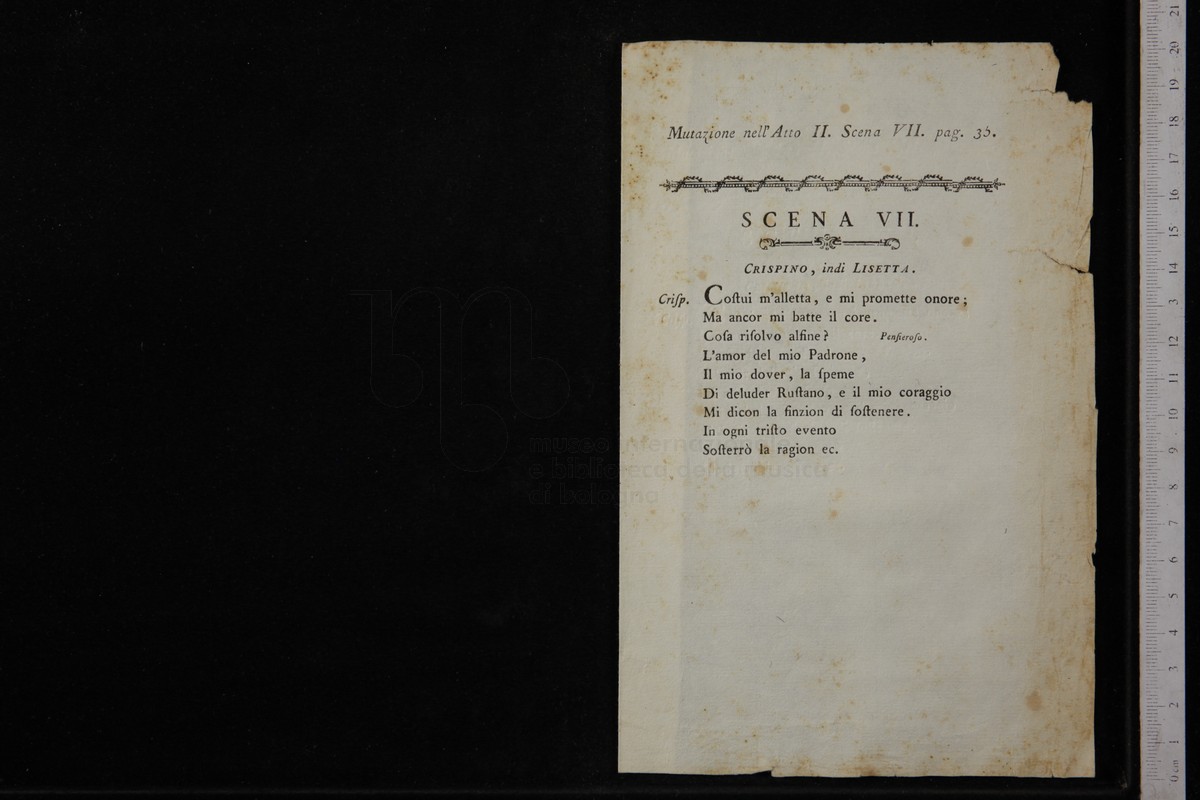 Mutazione nell'Atto II. Scena VII. pag. 35.
SCENA VII.
CRISPINO, indi LISETTA.
Criſp. Coſtui m'alletta, e mi promette onore;
Ma ancor mi batte il core.
Coſa riſolvo alfine? Penſieroſo.
L'amor del mio Padrone,
Il mio dover, la ſpeme
Di deluder Ruſtano, e il mio coraggio
Mi dicon la finzion di ſoſtenere.
In ogni triſto evento
Soſterrò la ragion ec.
museo internazionale
e biblioteca della musica
di bologna
0 cm 1 2 3 4 5 6 7 8 9 10 11 12 3 14 15 16 17 18 19 20 21